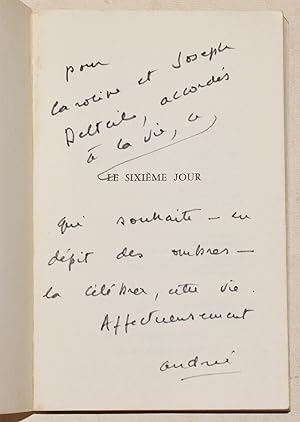 pour
Caroline et Joseph
Delteil, accordés
à la vie, ce
LE SIXIÈME JOUR
qui souhaite – en
dépit des ombres –
la célébrer, cette vie.
Affectueusement
andrée